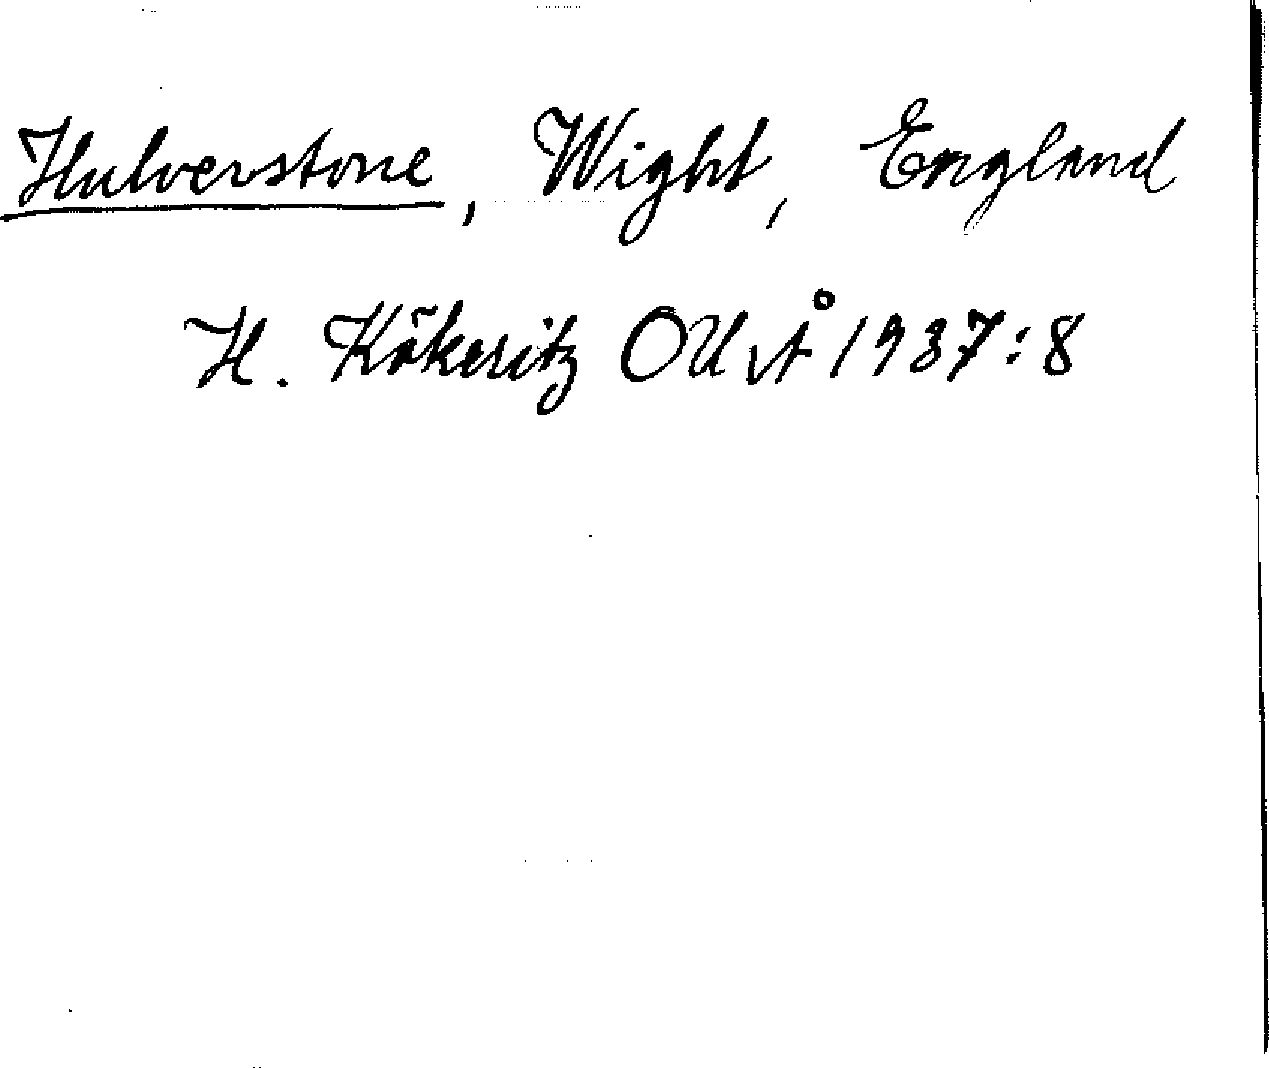 Hulverstone, Wight, England
H. Kökeritz OUÅ 1937:8